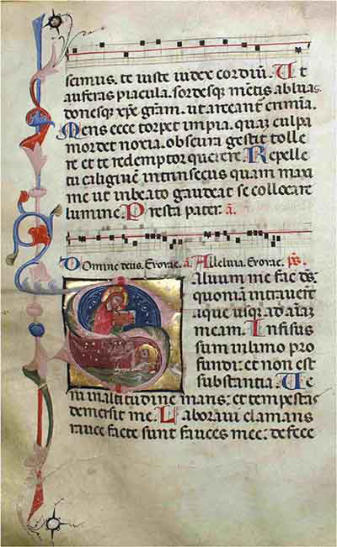 scimus. te iuste iudex cordiū. Ut
auferas piacula. sordesq; mētis abluas
donesq; xpe grām. ut arceant crimīa.
Mens ecce torpet impia. quaȝ culpa
mordet noxia. obscura gestit tolle
re et te redemptor querere. Repelle
tu caliginē intrinsecus quam maxi
me ut inbeato gaudeat se collocare
lumine. Presta pater. a.
Domine deus. Evovae. a. Alleluia. Evovae. ps.
Saluum me fac ds:
quoniā intraverūt
aque usq; ad aīaȝ
meam. Infixus
sum inlimo pro
fundi: et non est
substantia. Ue
ni inaltitudine maris: et tempestas
demersit me. Laboraui clamans
rauce facte sunt fauces mee: defece